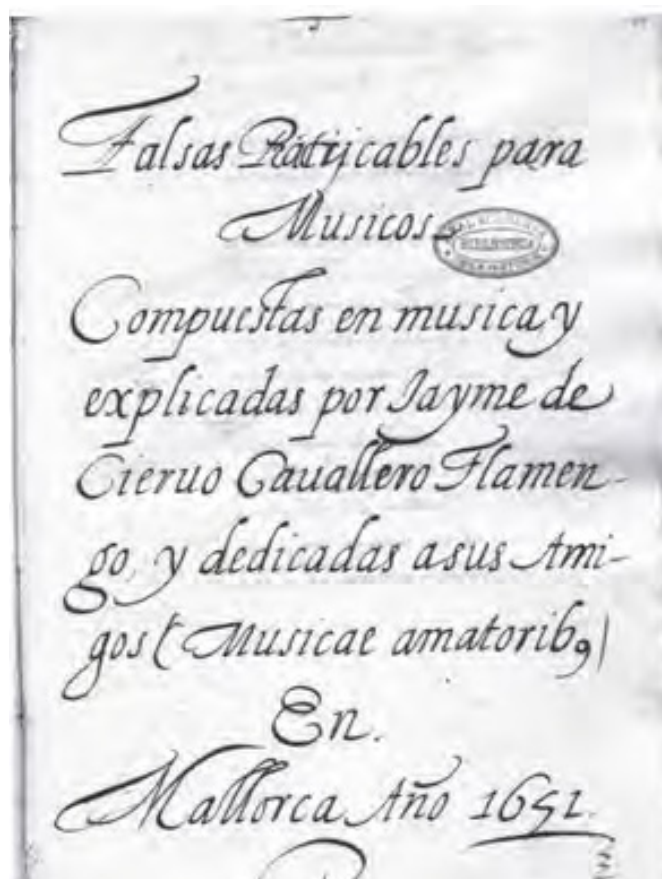 Falsas Ratijcables para
Musicos
BIBLIOTECA
Compuestas en musica y
explicadas por Jayme de
Cieruo Cauallero Flamen-
go, y dedicadas a sus Ami-
gos ( Musicae amatorib9 )
En.
Mallorca Año 1651.